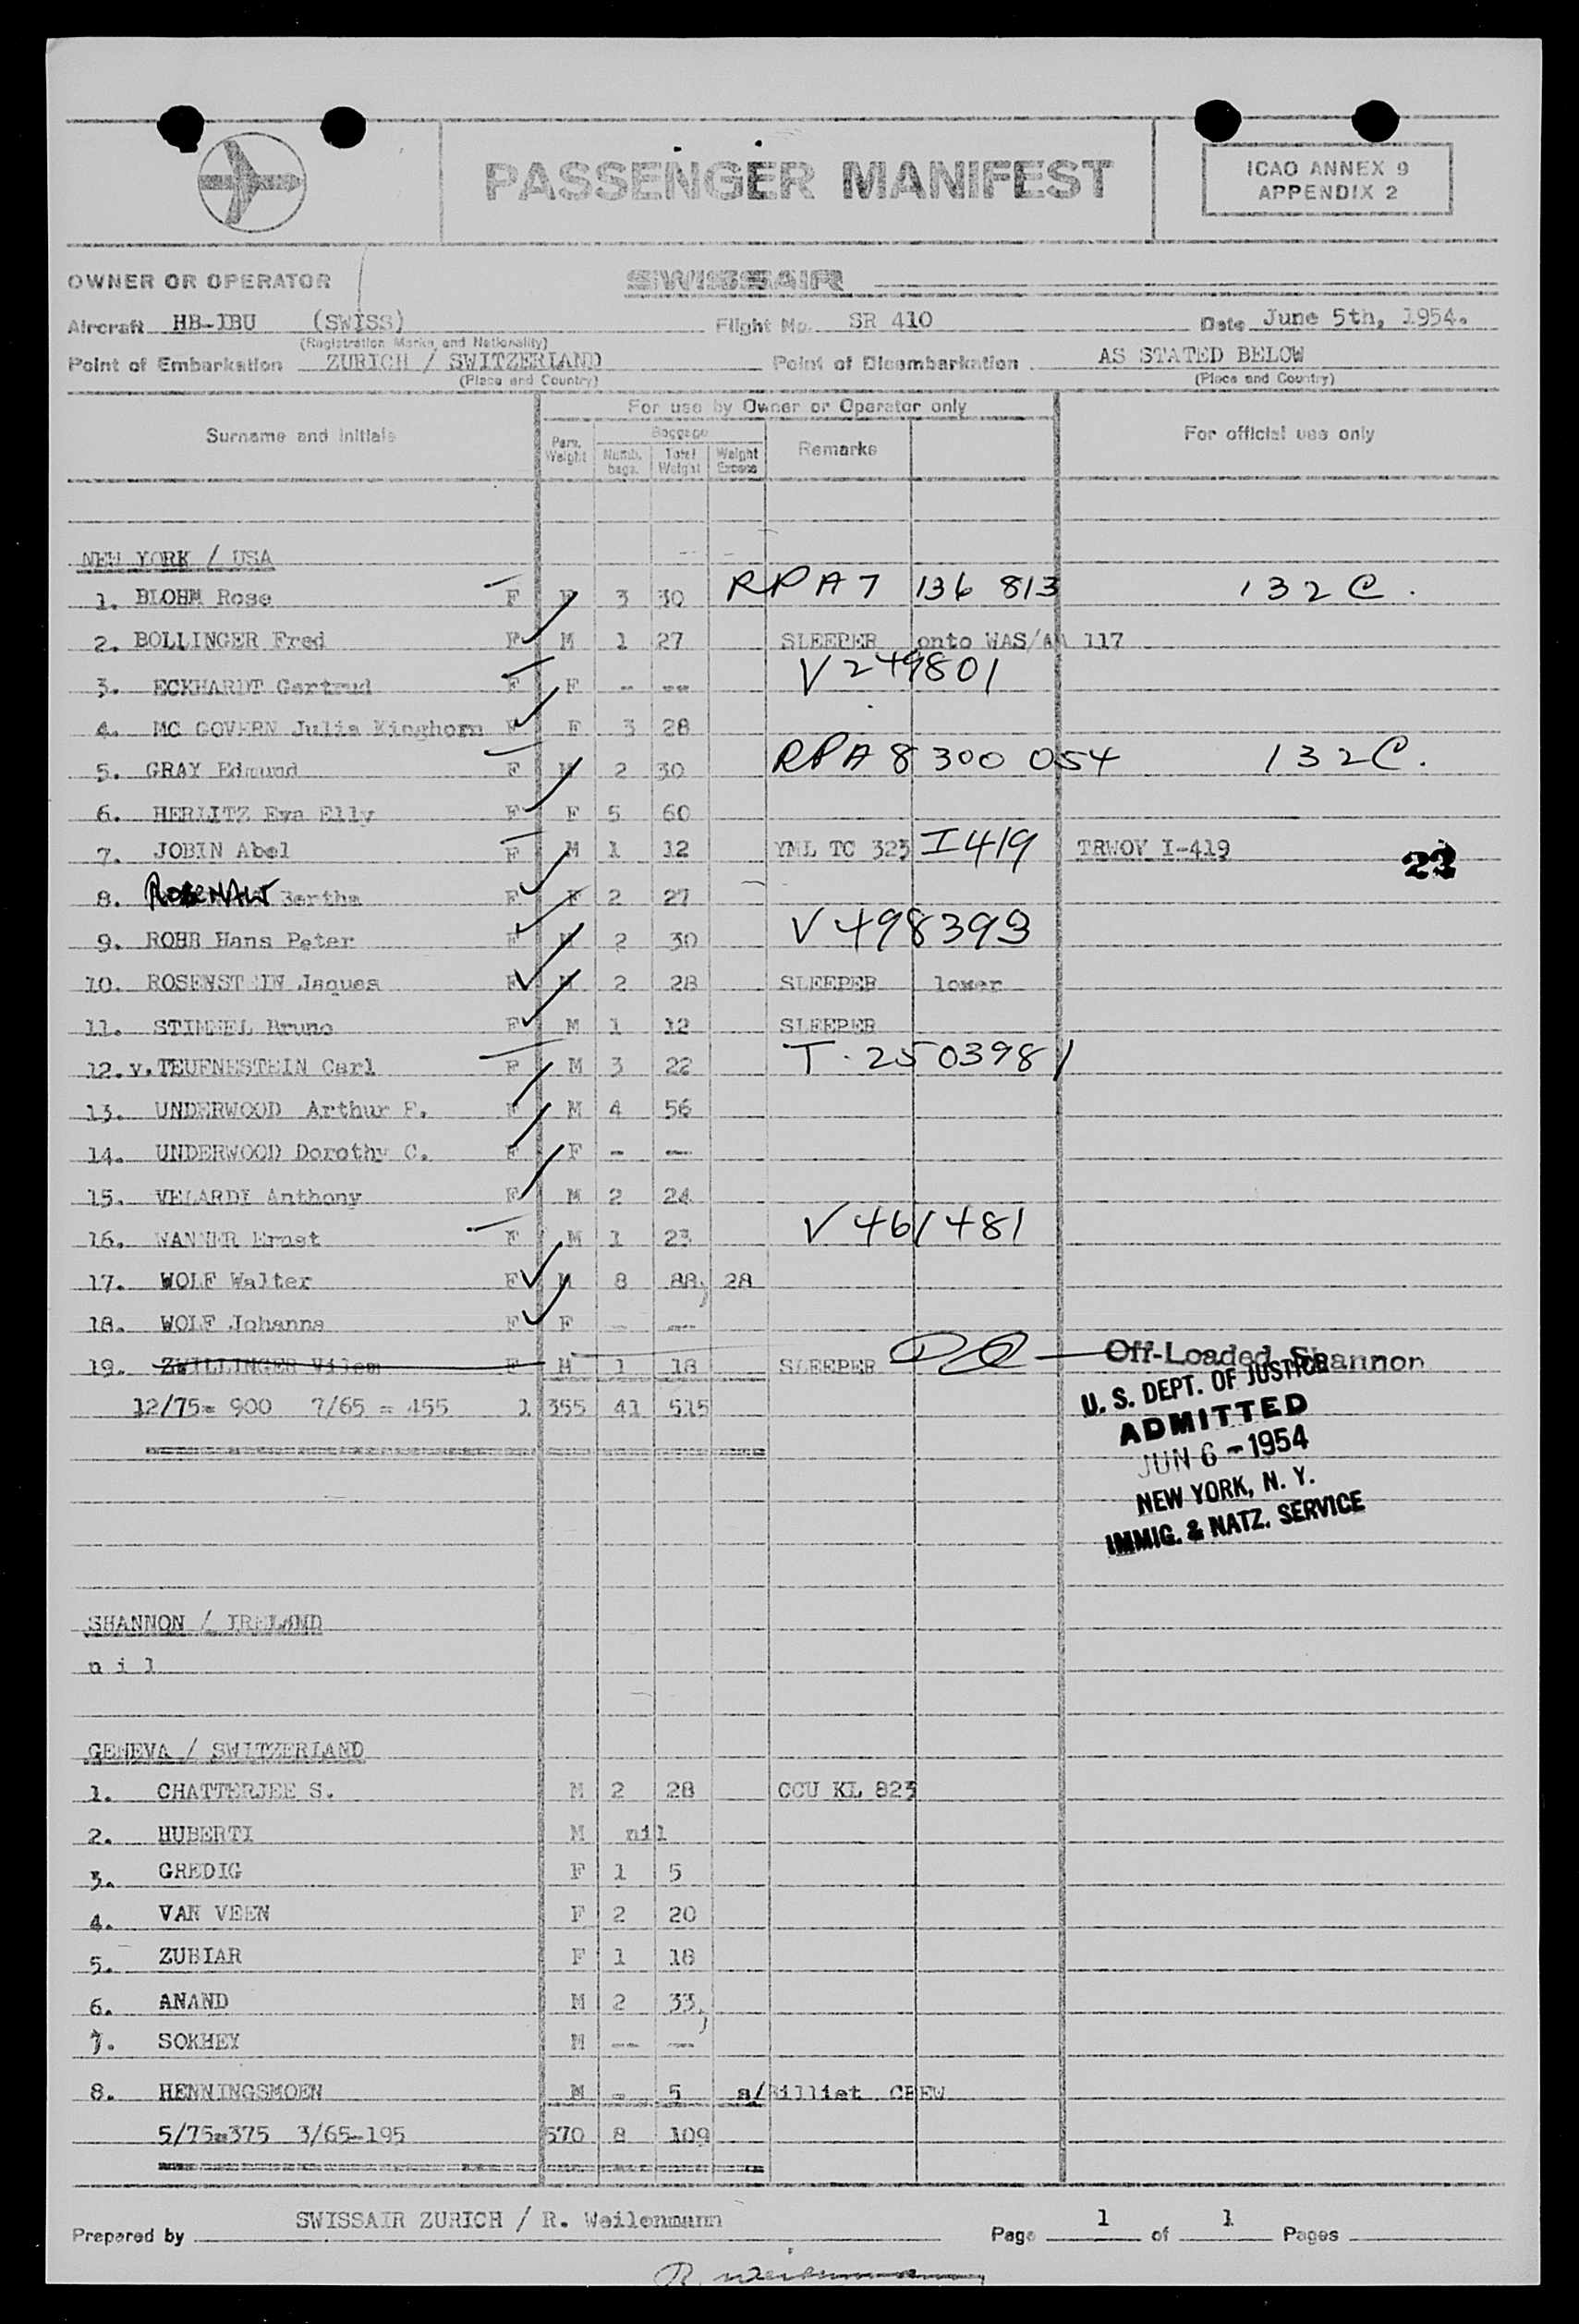 PASSENGER MANIFEST
ICAO ANNEX 9
APPENDIX 2
OWNER OR OPERATOR SWISSAIR
Aircraft HB-IBU (SWISS) Flight No. SR 410 Date June 5th, 1954.
(Registration Marks and Nationality)
Point of Embarkation ZURICH / SWITZERLAND Point of Disembarkation AS STATED BELOW
(Place and Country) (Place and Country)
For use by Owner or Operator only
Surname and initials Pers. Weight Baggage Numb. bags. Total Weight Weight Excess Remarks For official use only
NEW YORK / USA
1. BLOHM Rose F F 3 30 RPA7 136 813 132C.
2. BOLLINGER Fred F M 1 27 SLEEPER onto WAS/AA 117
3. ECKHARDT Gertrud F F - -- V249801
4. MC GOVERN Julia Kinghorn F F 3 28
5. GRAY Edmund F M 2 30 RPA8 300 054 132C.
6. HERLITZ Eva Elly F F 5 60
7. JOBIN Abel F M 1 12 YML TC 323 I419 TRWOV I-419 23
8. Bertha F F 2 27
9. ROHR Hans Peter F M 2 30 V498393
10. ROSENSTEIN Jaques F M 2 28 SLEEPER lower
11. STIMMEL Bruno F M 1 12 SLEEPER
12. v. TEUFNESTEIN Carl F M 3 22 T.2503981
13. UNDERWOOD Arthur F. F M 4 56
14. UNDERWOOD Dorothy C. F F - --
15. VELARDI Anthony F M 2 24
16. WANNER Ernst F M 1 23 V461481
17. WOLF Walter F M 8 88) 28
18. WOLF Johanna F F - --
19. ZWILLINGER Vilem F M 1 18 SLEEPER Off-Loaded Shannon
12/75= 900 7/65 = 455 1 355 41 515
U. S. DEPT. OF JUSTICE
ADMITTED
JUN 6 - 1954
NEW YORK, N. Y.
IMMIG. & NATZ. SERVICE
SHANNON / IRELAND
n i l
GENEVA / SWITZERLAND
1. CHATTERJEE S. M 2 28 CCU KL 823
2. HUBERTI M nil
3. GREDIG F 1 5
4. VAN VEEN F 2 20
5. ZUBIAR F 1 18
6. ANAND M 2 33)
7. SOKHEY M -- --
8. HENNINGSMOEN M - 5 s/Billiet CREW
5/75=375 3/65-195 570 8 109
Prepared by SWISSAIR ZURICH / R. Weilenmann Page 1 of 1 Pages
R. Weilenmann